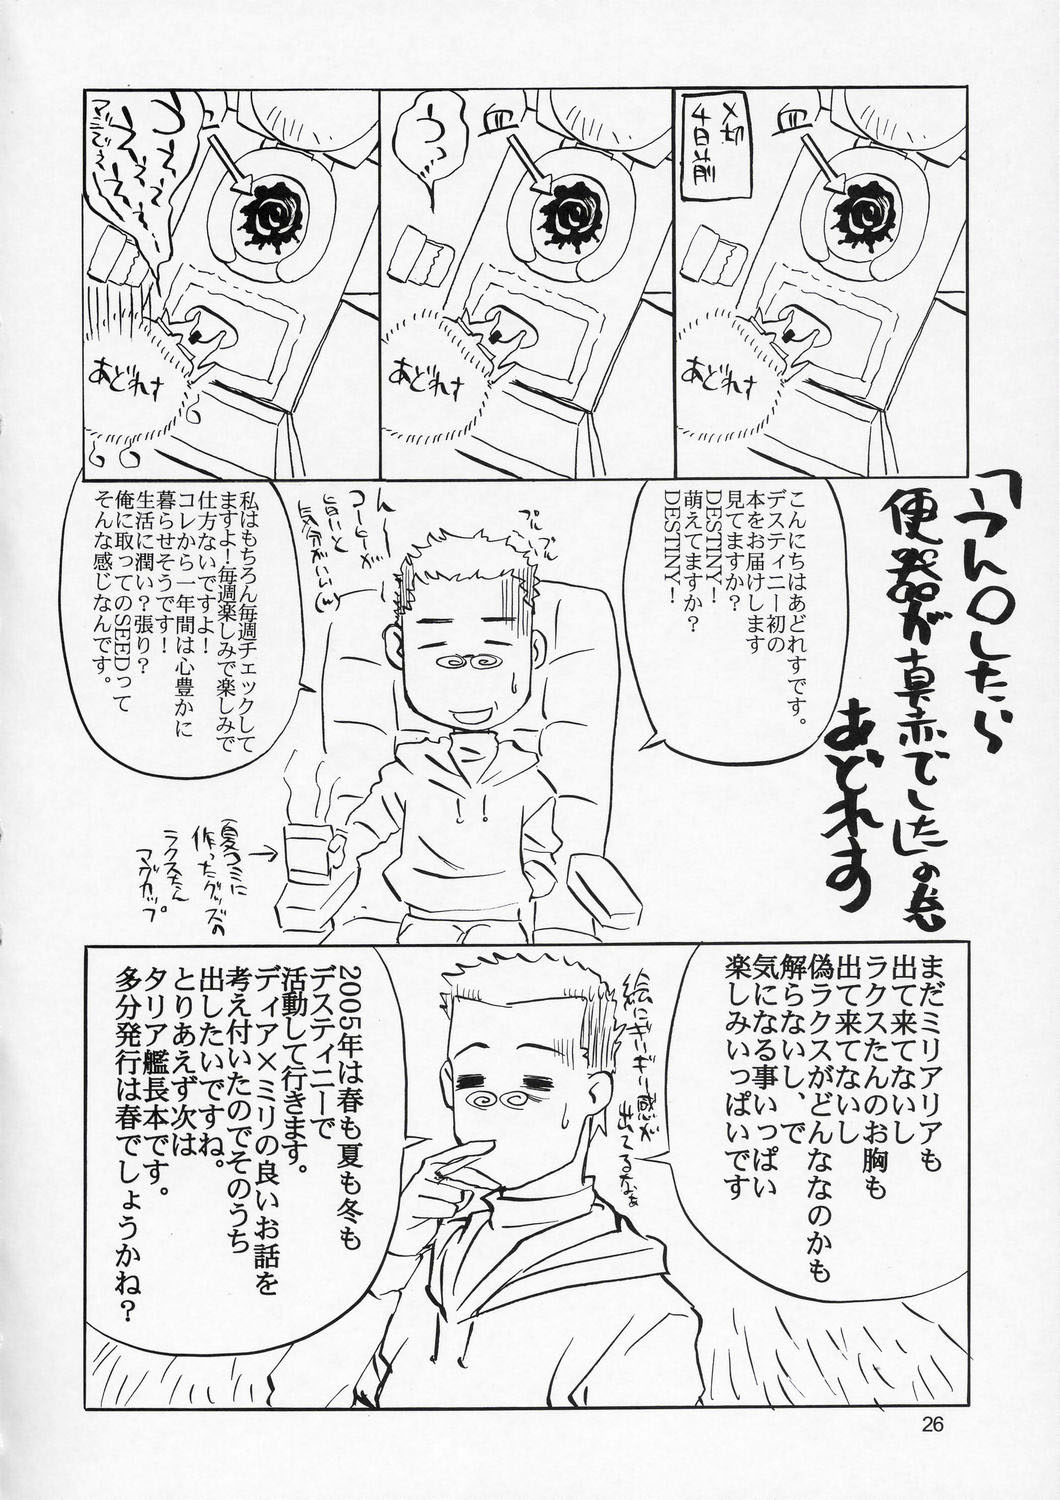 〆切
4日前
血
あどれす
血
うっ…
あどれす
血
あどれす
「うん○したら
便器が真赤でした」の巻
あどれす
こんにちはあどれすです。
デスティニー初の
本をお届けします
見てますか?
DESTINY!
萌えてますか?
DESTINY!
プルプル
プルプル
ん〜
コーヒーが
旨いと
気分がいい
私はもちろん毎週チェックして
ますよ!毎週楽しみで楽しみで
仕方ないですよ!
コレから一年間は心豊かに
暮らせそうです!
生活に潤い?張り?
俺に取ってのSEEDって
そんな感じなんです。
夏コミに
作ったグッズの
ラクスたん
マグカップ。
まだミリアリアも
出て来てないし
ラクスたんのお胸も
出て来てないし
偽ラクスがどんななのかも
解らないし、で
気になる事いっぱい
楽しみいっぱいです
絵にギーギー感が
出てるなぁ
2005年は春も夏も冬も
デスティニーで
活動して行きます。
ディア×ミリの良いお話を
考え付いたのでそのうち
出したいですね。
とりあえず次は
タリア艦長本です。
多分発行は春でしょうかね?
26